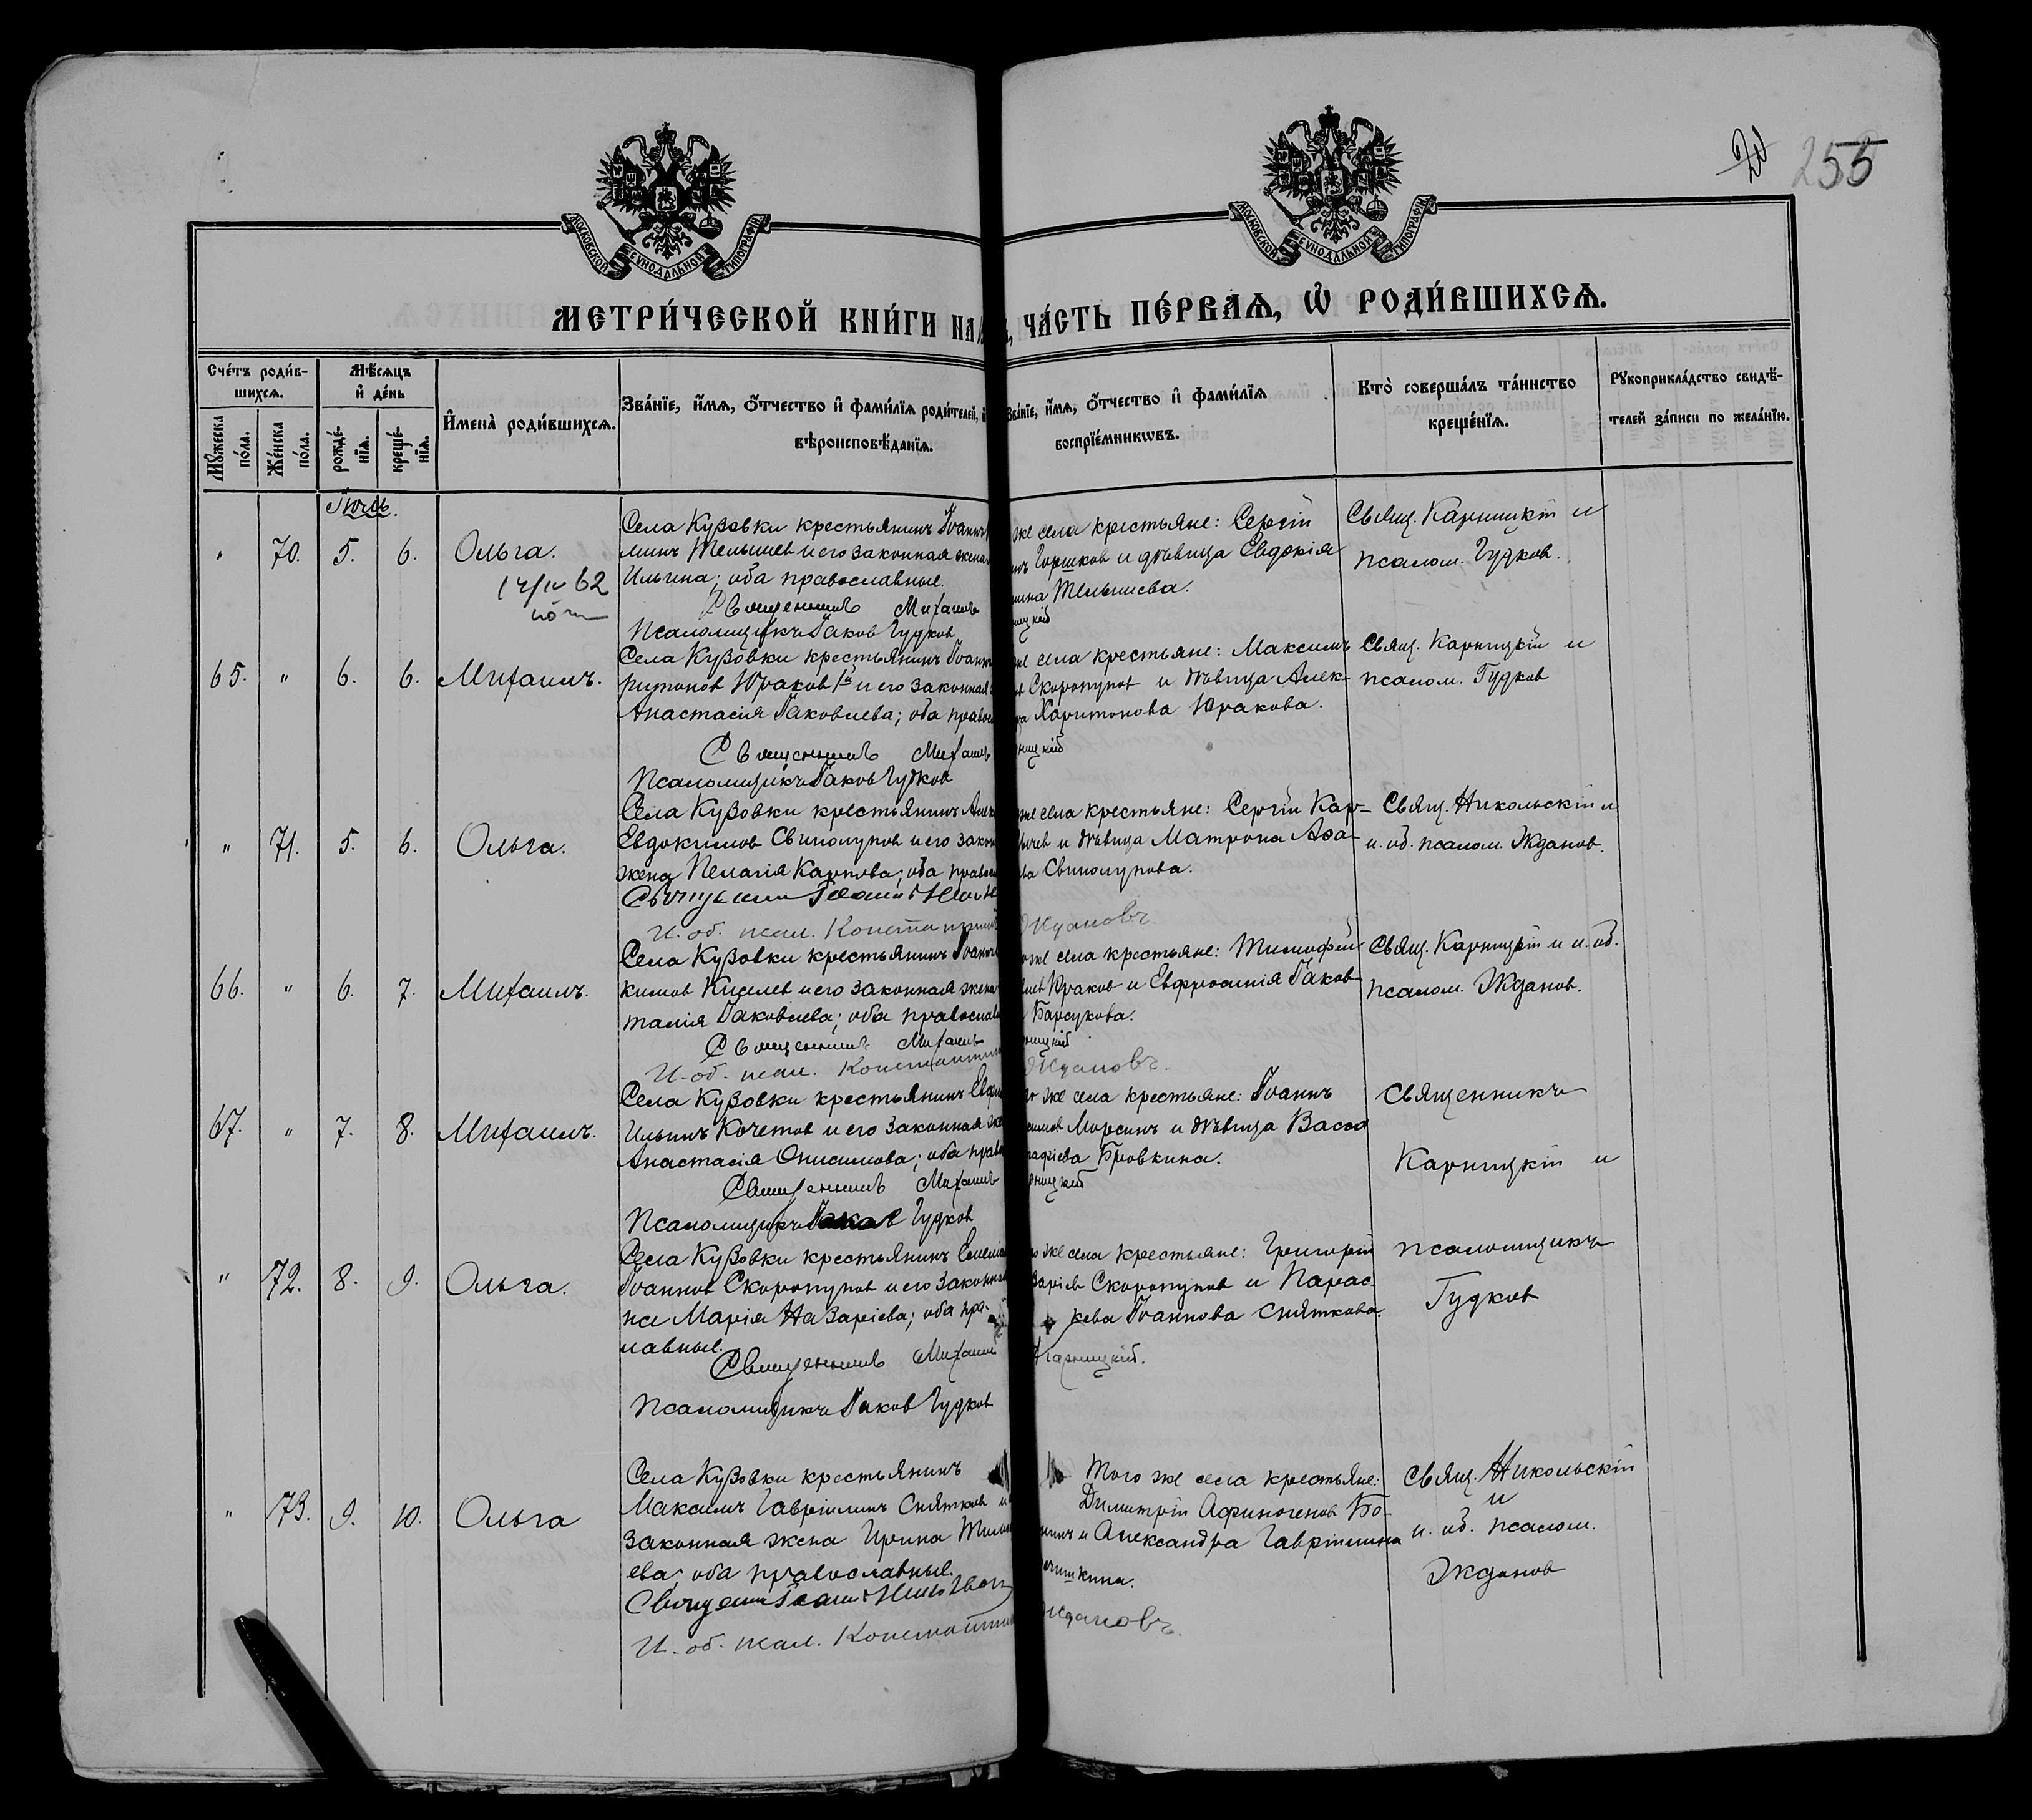 255
МОСКОВСКОЙ СѴНОДАЛЬНОЙ ТИПОГРАФІИ
МОСКОВСКОЙ СѴНОДАЛЬНОЙ ТИПОГРАФІИ
МЕТРИ́ЧЕСКОЙ КНИ́ГИ НА
ЧА́СТЬ ПЕ́РВАѦ, Ѽ РОДИ́ВШИХСѦ.
Сче́тъ роди́в-
шихсѧ.
Мꙋжеска по́ла.
Же́нска по́ла.
Мѣ́сѧцъ
и҆ де́нь
рожде́-
нїѧ.
креще́-
нїѧ.
И҆мена̀ роди́вшихсѧ.
Зва́нїе, и҆́мѧ, ѻ҆́тчество и҆ фами́лїѧ роди́телей, и҆
вѣроисповѣ́данїѧ.
Зва́нїе, и҆́мѧ, ѻ҆́тчество и҆ фами́лїѧ
воспрїе́мникѡвъ.
Кто̀ соверша́лъ та́инство
креще́нїѧ.
Рꙋкоприкла́дство свидѣ́-
телей за́писи по жела́нїю.
Іюль.
" 70. 5. 6. Ольга.
Села Кузовки крестьянинъ Іоаннъ
минъ Телышев и его законная жена
Ильина; оба православные.
Священникъ Михаилъ
Псаломщикъ Іаков Гудков
же села крестьяне: Сергій
Горшков и дѣвица Евдокія
Телышева.
Свящ. Карницкій и
псалом. Гудков.
65. " 6. 6. Михаилъ.
Села Кузовки крестьянинъ Іоаннъ
ритонов Юраков 1й и его законная
Анастасія Іаковлева; оба право
Священникъ Михаилъ
Псаломщикъ Іаков Гудков
же села крестьяне: Максимъ
Скоропупов и дѣвица Алек-
ра Харитонова Юракова.
ницкій
Свящ. Карницкій и
псалом. Гудков
" 71. 5. 6. Ольга.
Села Кузовки крестьянинъ Алек
Евдокимов Свинолупов и его закон
жена Пелагія Карпова; оба право
Священникъ Іоаннъ Николь
И. об. псал. Константинъ
же села крестьяне: Сергій Кар-
и дѣвица Матрона
ва Свинолупова.
Ждановъ.
Свящ. Никольскій и
и. об. псалом. Жданов.
66. " 6. 7. Михаилъ.
Села Кузовки крестьянинъ Іоаннъ
кимов Киселев и его законная жена
талія Іаковлева; оба православ
Священникъ Михаилъ
И. об. псал. Константинъ
же села крестьяне: Тимофей
Юраков и Евфросинія Іаков-
Барсукова.
ницкій
Ждановъ.
Свящ. Карницкій и и. об.
псалом. Жданов.
67. " 7. 8. Михаилъ.
Села Кузовки крестьянинъ
Ильинъ Кочетов и его законная
Анастасія Онисимова; оба право
Священникъ Михаилъ
Псаломщикъ Іаков Гудков
же села крестьяне: Іоаннъ
Морсинъ и дѣвица Васса
Бровкина.
ницкій
Священникъ
Карницкій и
псаломщикъ
Гудков
" 72. 8. 9. Ольга.
Села Кузовки крестьянинъ
Іоаннов Скоропупов и его законная
на Марія Назаріева; оба пра-
лавные.
Священникъ Михаилъ
Псаломщикъ Іаков Гудков
же села крестьяне: Григорій
заріев Скоропупов и Парас-
кева Іоаннова Сняткова.
Карницкій.
" 73. 9. 10. Ольга
Села Кузовки крестьянинъ
Максимъ Гавріилинъ Снятков и
законная жена Ирина
ева; оба православные.
Священникъ Іоаннъ Никольскій
И. об. псал. Константинъ
Того же села крестьяне:
Димитрій Афиногенов Бо-
и Александра Гавріилина
Ждановъ.
Свящ. Никольскій
и
и. об. псалом.
Жданов